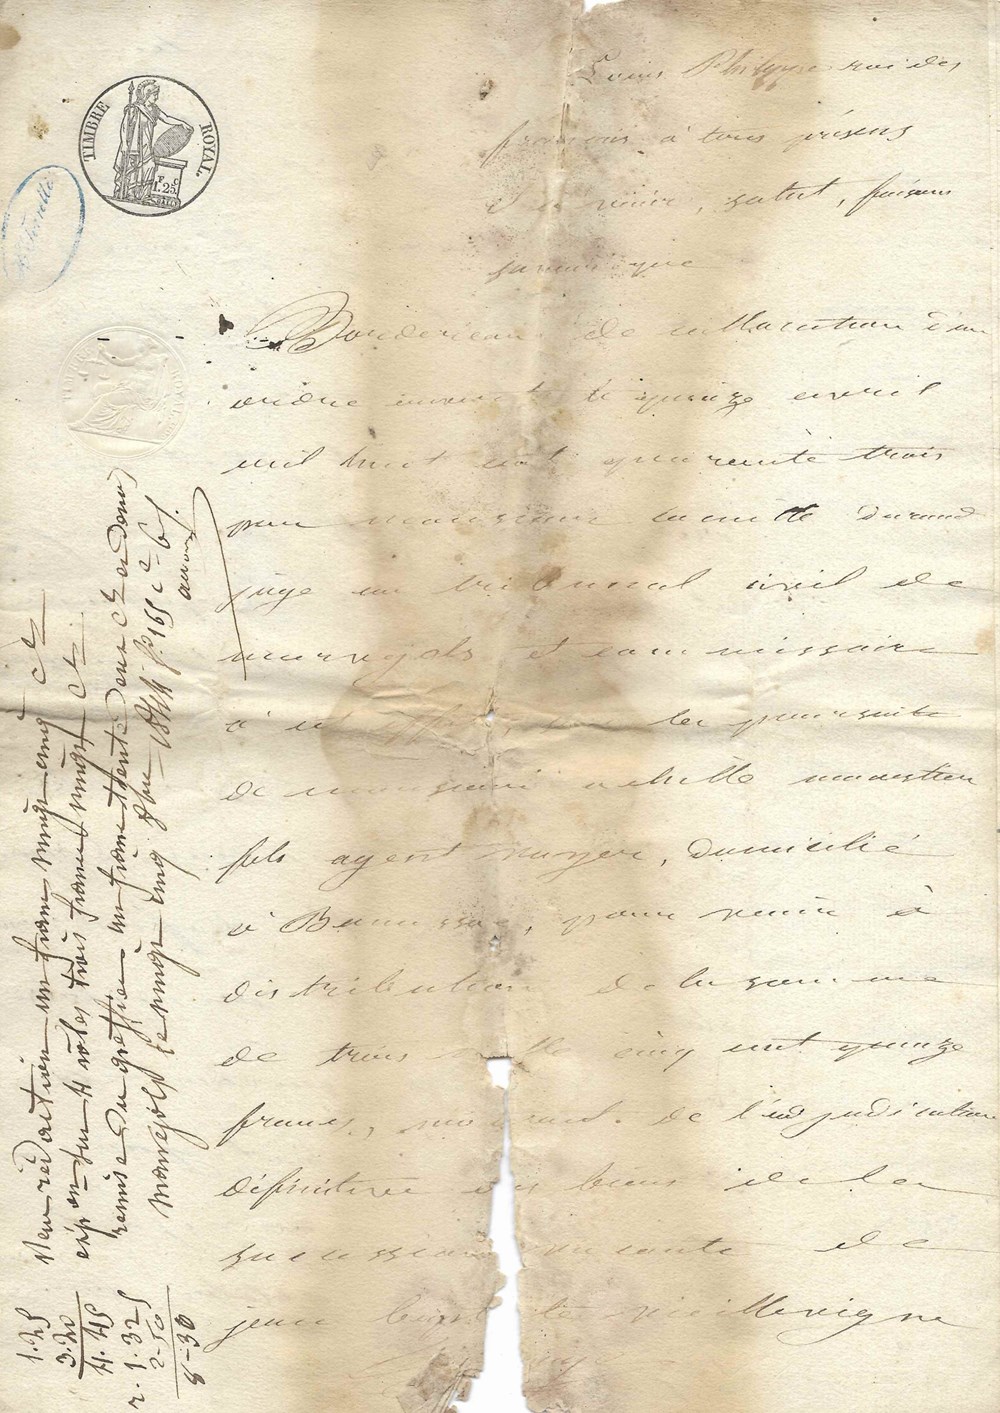 TIMBRE ROYAL.
F. C.
1.25
Louis Philippe roi des
français à tous présens
et à venir, salut, faisons
savoir que
Bordereau de collocation d'un
ordre ouvert le quinze avril
mil huit cent quarante trois
par monsieur Durand
juge au tribunal civil de
marvejols et commissaire
à cet effet, sur la poursuite
de monsieur achille
fils agent voyer, domicilié
à Banassac, pour venir à
distribution de la somme
de trois mille cinq cent quinze
francs, provenant de l'adjudication
définitive des biens de la
succession vacante de
jean vieillevigne
Pour rédaction un franc vingt cinq c
exp on sur 4 rôles trois francs vingt c
remise du greffier un franc trente deux c
marvejols le vingt cinq 1844 f 165 c 6
1.25
3.20
4.45
r. 1.325
2-50
8-30